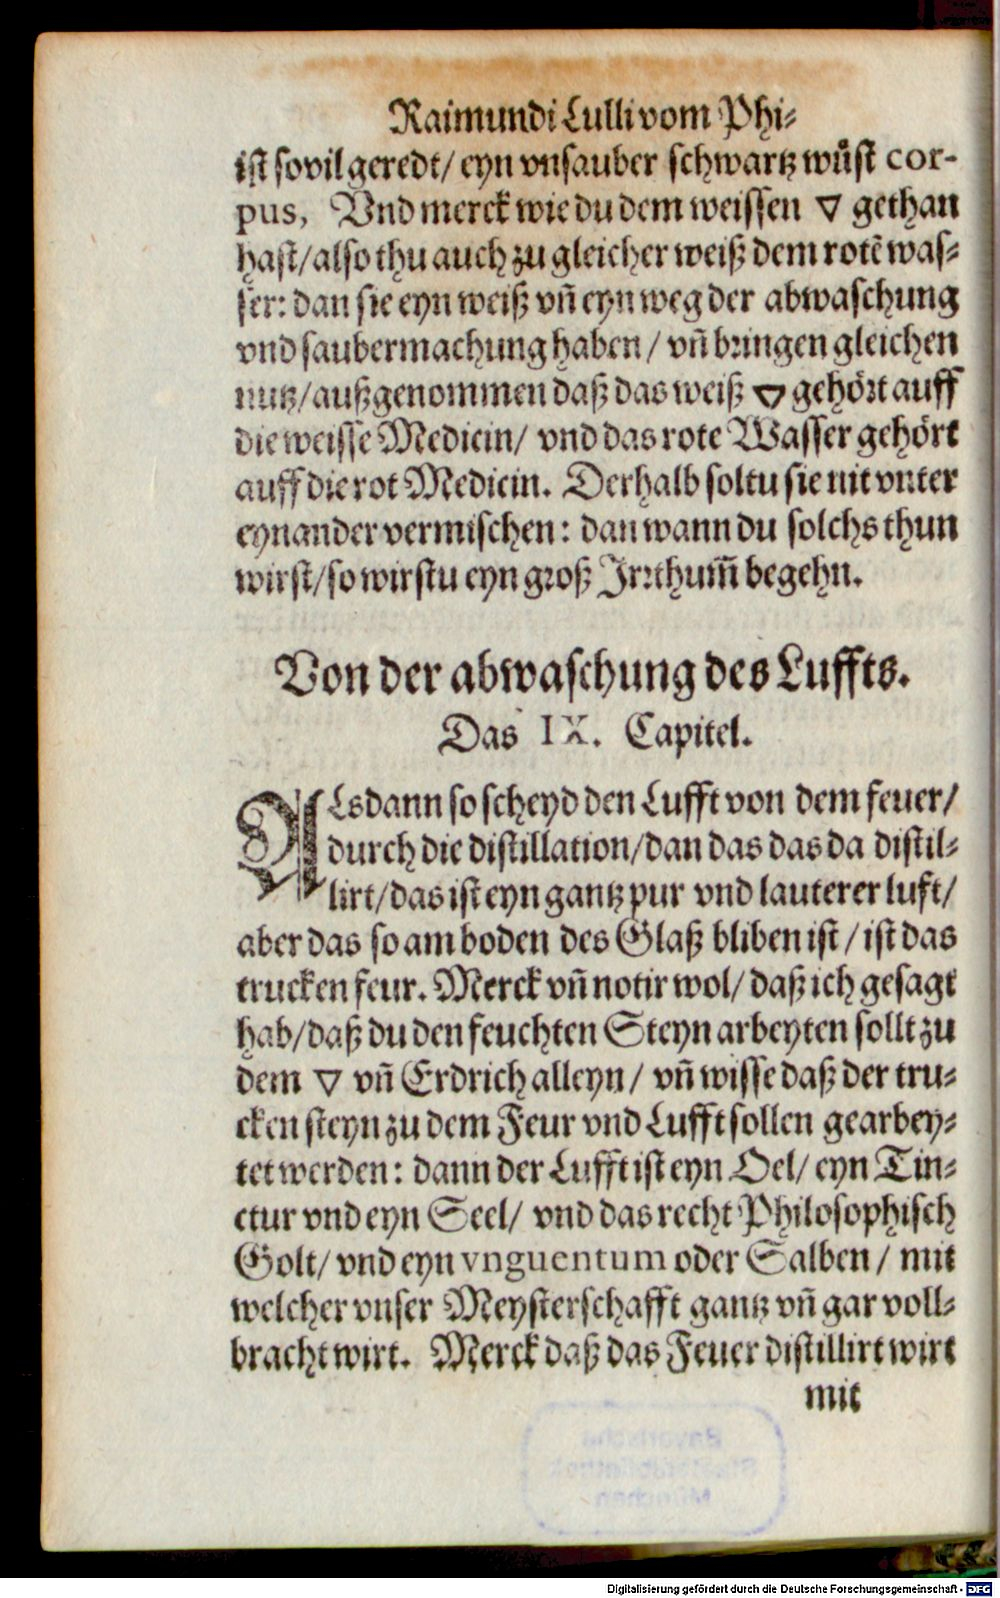 Raimundi Lulli vom Phi⸗
ist sovil geredt/ eyn vnsauber schwartz wuͤst cor-
pus, Vnd merck wie du dem weissen ▽ gethan
hast/also thu auch zu gleicher weiß dem rotē was⸗
ser: dan sie eyn weiß vn̄ eyn weg der abwaschung
vnd saubermachung haben / vn̄ bringen gleichen
nutz/außgenommen daß das weiß ▽ gehoͤrt auff
die weisse Medicin/ vnd das rote Wasser gehoͤrt
auff die rot Medicin. Derhalb soltu sie nit vnter
eynander vermischen: dan wann du solchs thun
wirst/so wirstu eyn groß Irrthum̄ begehn.
Von der abwaschung des Luffts.
Das IX. Capitel.
ALsdann so scheyd den Lufft von dem feuer/
durch die distillation/dan das das da distil⸗
lirt/das ist eyn gantz pur vnd lauterer luft/
aber das so am boden des Glaß bliben ist / ist das
trucken feur. Merck vn̄ notir wol/ daß ich gesagt
hab/daß du den feuchten Steyn arbeyten sollt zu
dem ▽ vn̄ Erdrich alleyn/ vn̄ wisse daß der tru⸗
cken steyn zu dem Feur vnd Lufft sollen gearbey⸗
tet werden: dann der Lufft ist eyn Oel/ eyn Tin⸗
ctur vnd eyn Seel/ vnd das recht Philosophisch
Golt/ vnd eyn vnguentum oder Salben / mit
welcher vnser Meysterschafft gantz vn̄ gar voll⸗
bracht wirt. Merck daß das Feuer distillirt wirt
mit
Bayerische
Staatsbibliothek
München
Digitalisierung gefördert durch die Deutsche Forschungsgemeinschaft - DFG